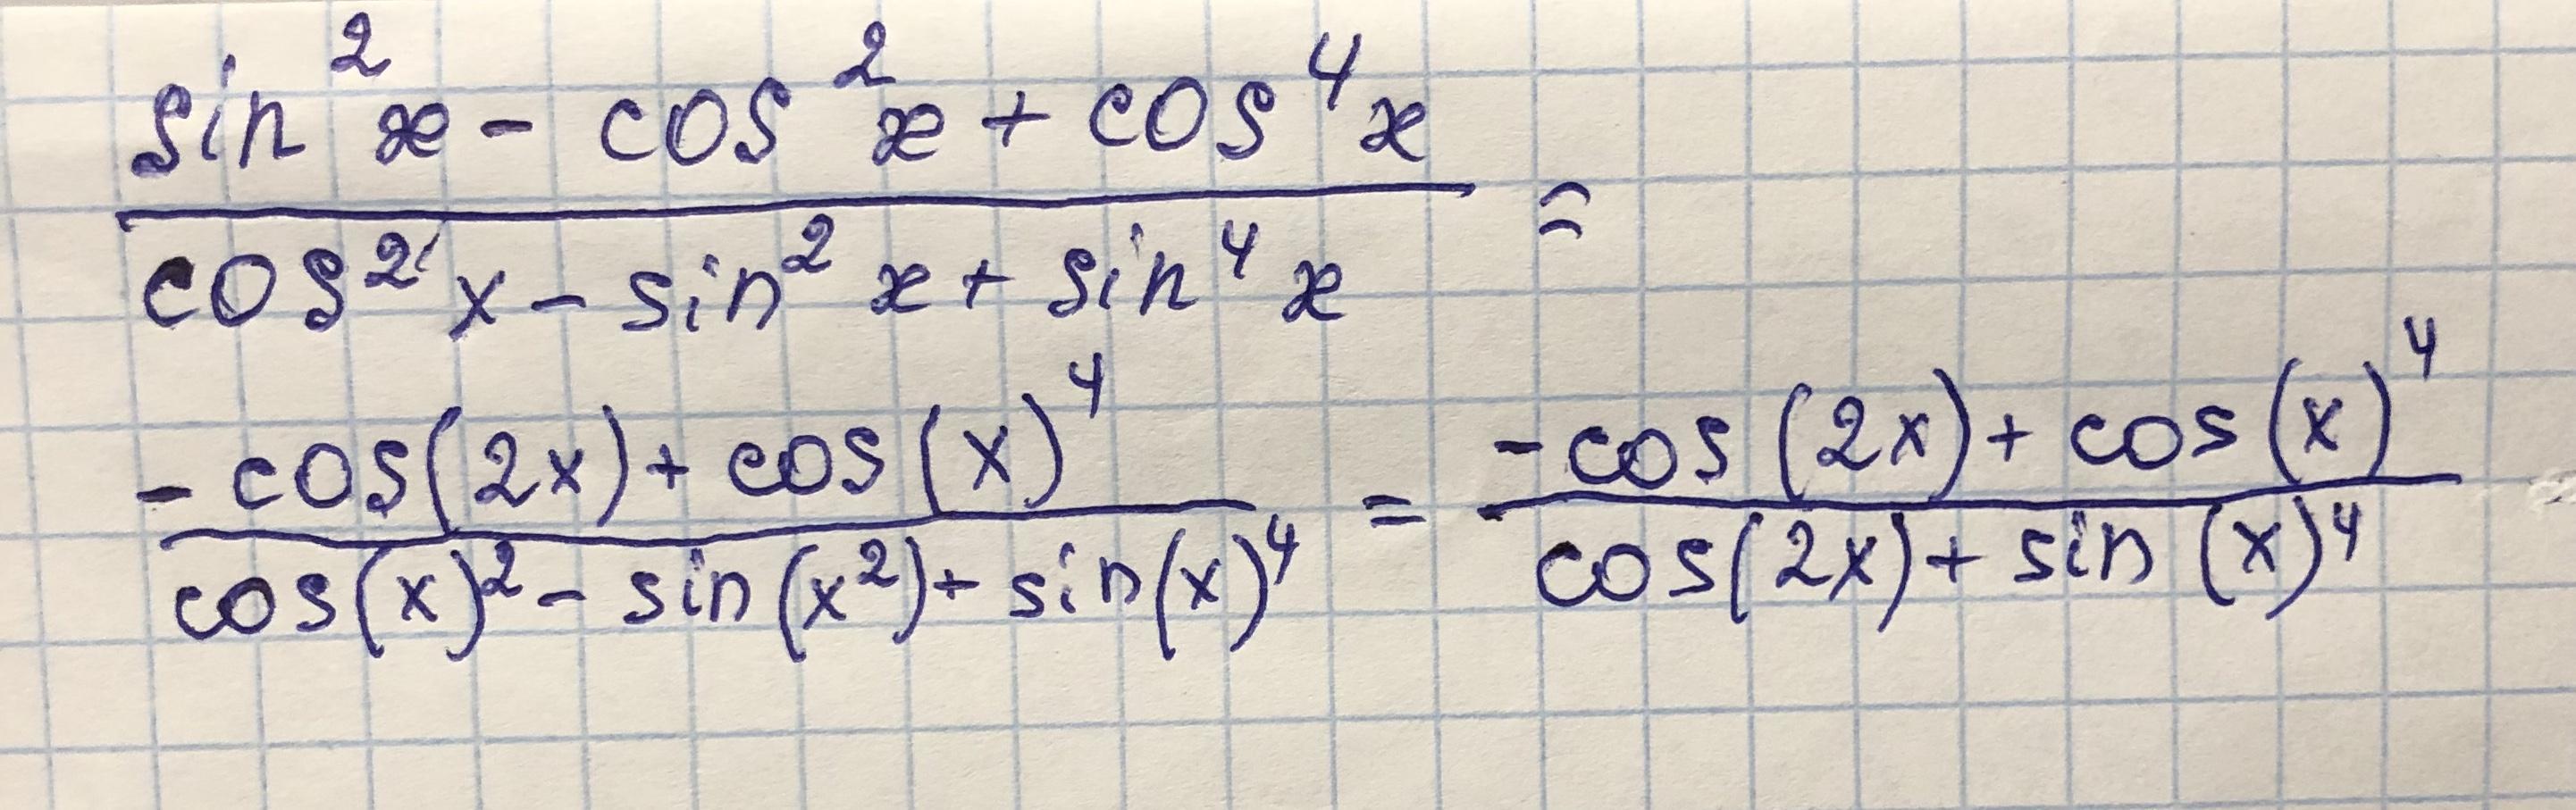 sin²x - cos²x + cos⁴x
cos²x - sin²x + sin⁴x =
-cos(2x) + cos(x)⁴
cos(x)² - sin(x²) + sin(x)⁴ =
-cos(2x) + cos(x)⁴
cos(2x) + sin(x)⁴